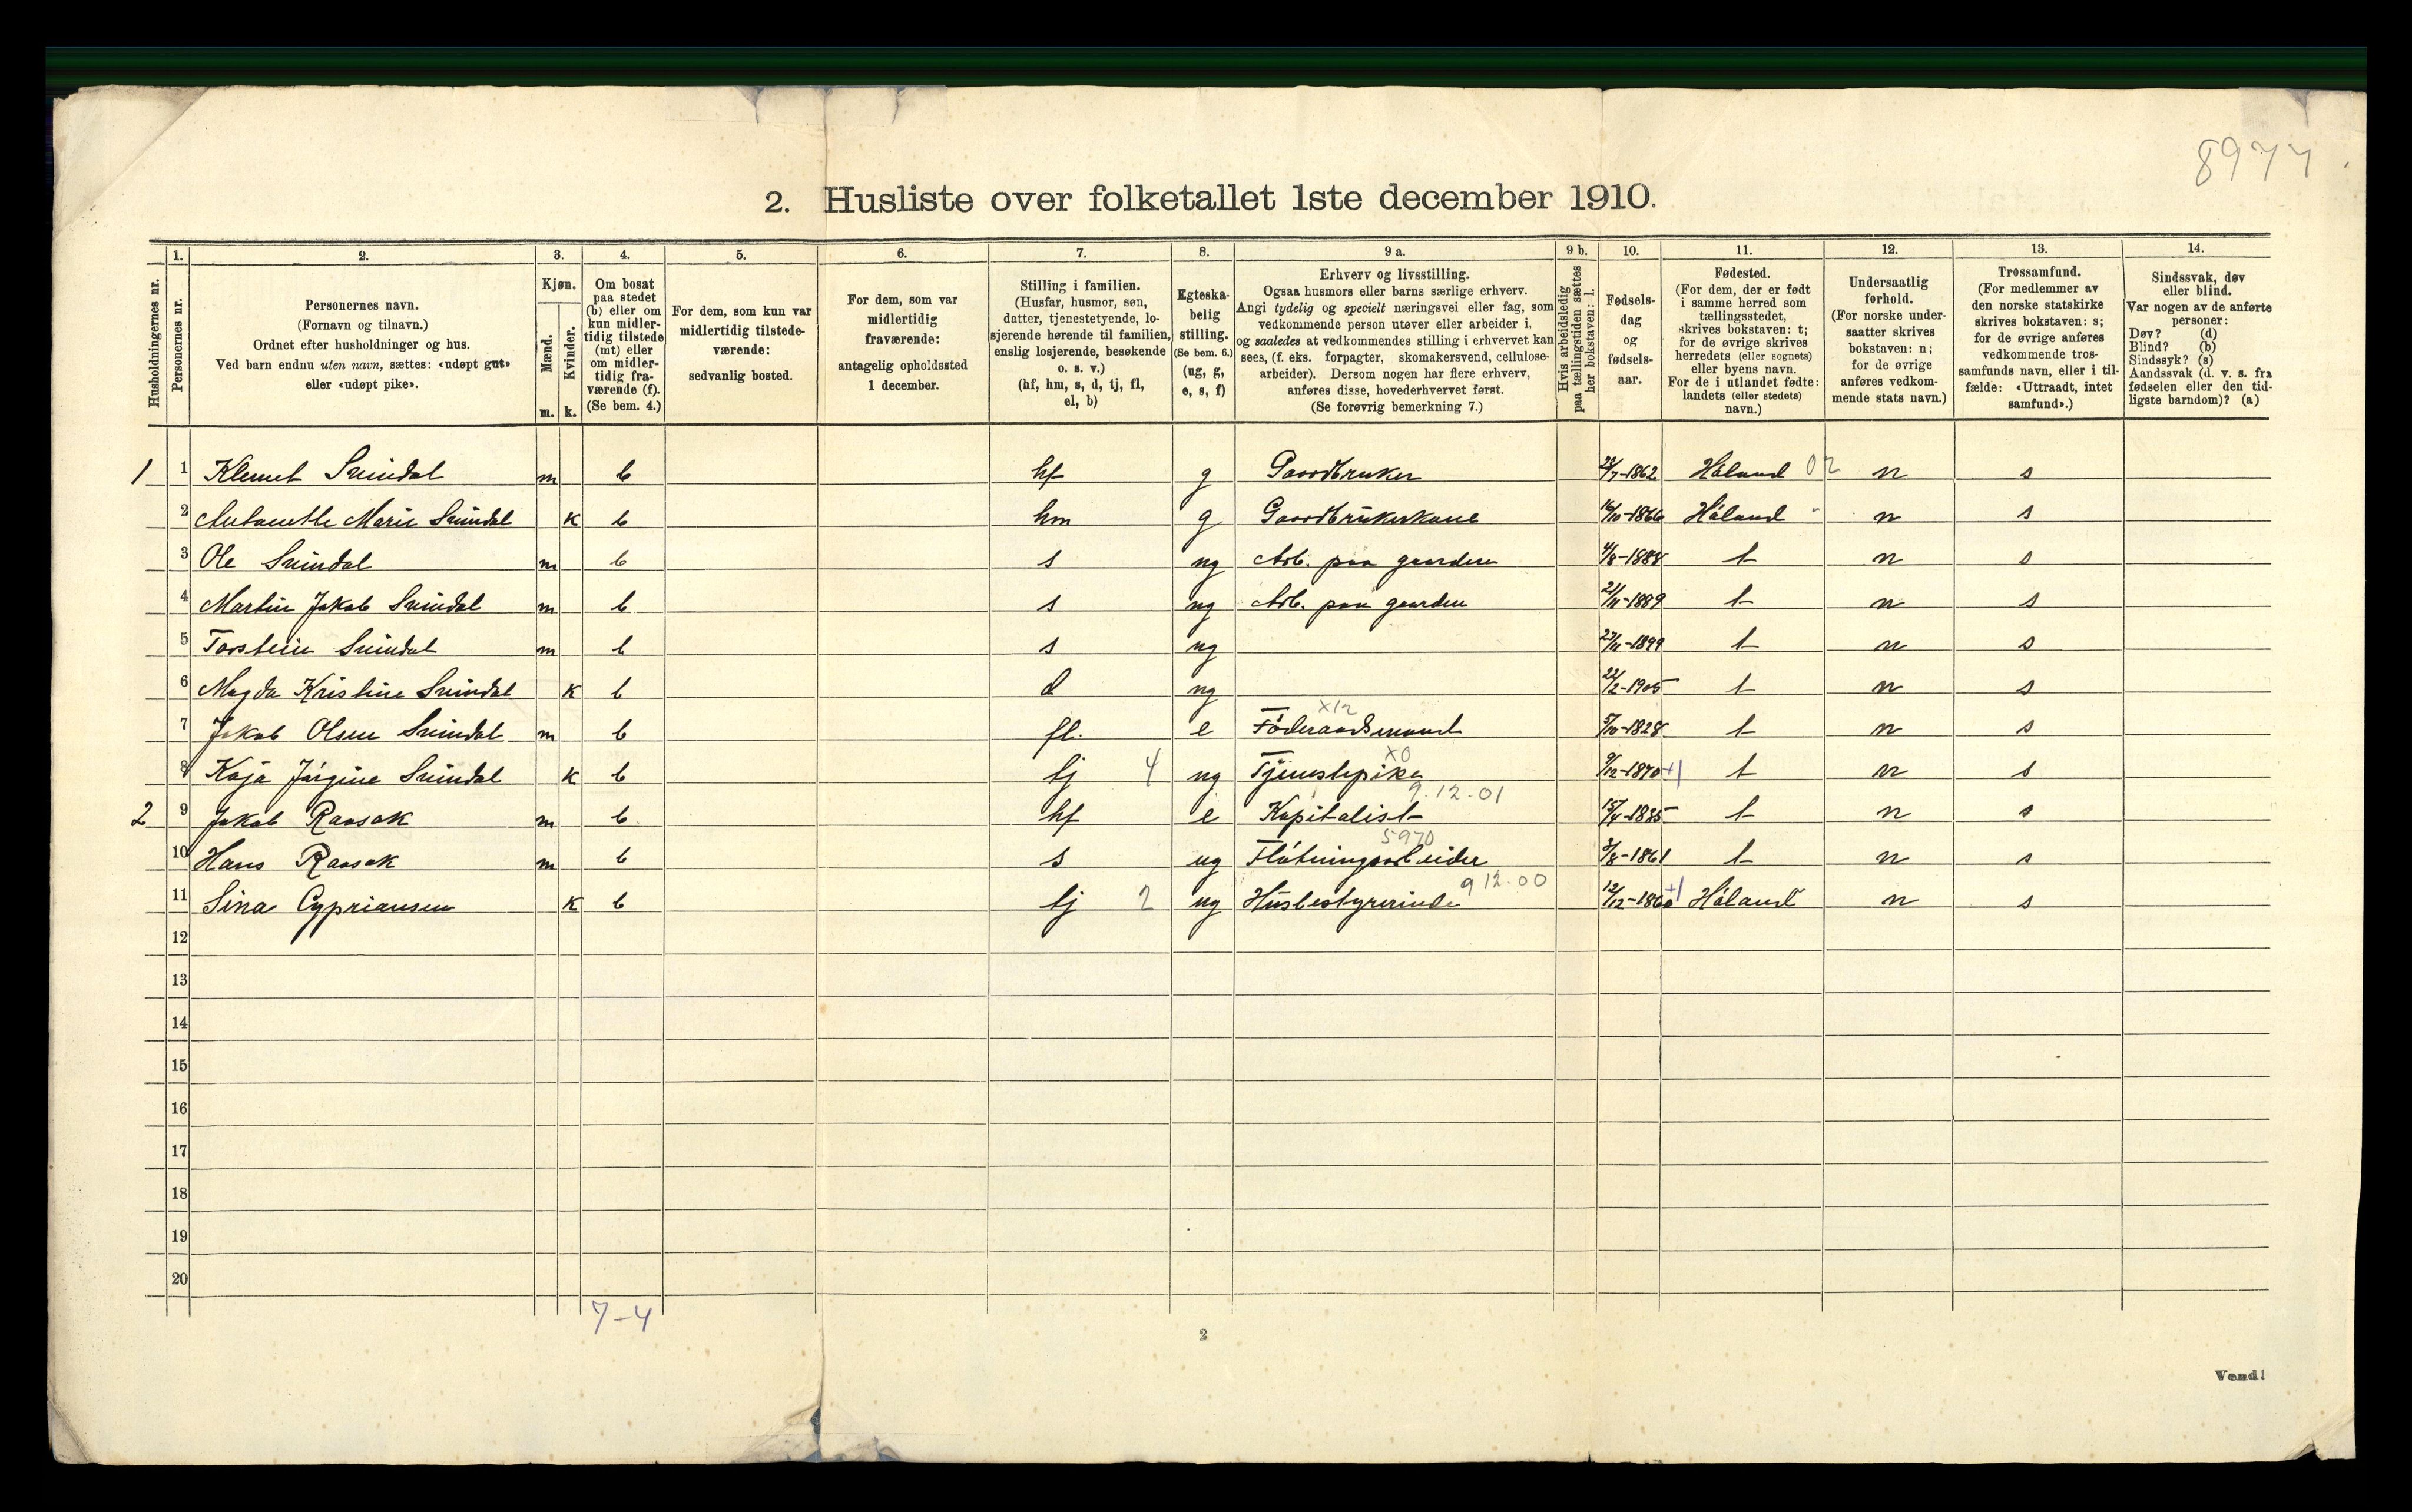 8977
2. Husliste over folketallet 1ste december 1910.
Husholdningernes nr.
1.
Personernes nr.
2.
Personernes navn.
(Fornavn og tilnavn.)
Ordnet efter husholdninger og hus.
Ved barn endnu uten navn, sættes: «udøpt gut»
eller «udøpt pike».
3.
Kjøn.
Mænd.
m.
Kvinder.
k.
4.
Om bosat
paa stedet
(b) eller om
kun midler-
tidig tilstede
(mt) eller
om midler-
tidig fra-
værende (f).
(Se bem. 4.)
5.
For dem, som kun var
midlertidig tilstede-
værende:
sedvanlig bosted.
6.
For dem, som var
midlertidig
fraværende:
antagelig opholdssted
1 december.
7.
Stilling i familien.
(Husfar, husmor, søn,
datter, tjenestetyende, lo-
sjerende hørende til familien,
enslig losjerende, besøkende
o. s. v.)
(hf, hm, s, d, tj, fl,
el, b)
8.
Egteska-
belig
stilling.
(Se bem. 6.)
(ug, g,
e, s, f)
9 a.
Erhverv og livsstilling.
Ogsaa husmors eller barns særlige erhverv.
Angi tydelig og specielt næringsvei eller fag, som
vedkommende person utøver eller arbeider i,
og saaledes at vedkommendes stilling i erhvervet kan
sees, (f. eks. forpagter, skomakersvend, cellulose-
arbeider). Dersom nogen har flere erhverv,
anføres disse, hovederhvervet først.
(Se forøvrig bemerkning 7.)
9 b.
Hvis arbeidsledig
paa tællingstiden sættes
her bokstaven: l.
10.
Fødsels-
dag
og
fødsels-
aar.
11.
Fødested.
(For dem, der er født
i samme herred som
tællingsstedet,
skrives bokstaven: t;
for de øvrige skrives
herredets (eller sognets)
eller byens navn.
For de i utlandet fødte:
landets (eller stedets)
navn.)
12.
Undersaatlig
forhold.
(For norske under-
saatter skrives
bokstaven: n;
for de øvrige
anføres vedkom-
mende stats navn.)
13.
Trossamfund.
(For medlemmer av
den norske statskirke
skrives bokstaven: s;
for de øvrige anføres
vedkommende tros-
samfunds navn, eller i til-
fælde: «Uttraadt, intet
samfund».)
14.
Sindssvak, døv
eller blind.
Var nogen av de anførte
personer:
Døv? (d)
Blind? (b)
Sindssyk? (s)
Aandssvak (d. v. s. fra
fødselen eller den tid-
ligste barndom)? (a)
1 1 Klemet Svindal m b hf g Gaardbruker 1862 Håland 02 n s
2 Antonette Marie Svindal k b hm g Gaardbrukerkone 16/10-1866 Håland " n s
3 Ole Svindal m b s ug Arb. paa gaarden 4/8-1888 t n s
4 Martin Jakob Svindal m b s ug Arb. paa gaarden 21/11-1889 t n s
5 Torstein Svindal m b s ug 1899 t n s
6 Magda Kristine Svindal k b d ug 22/2-1905 t n s
X12
7 Jakob Olsen Svindal m b fl. e Föderaadsmand 5/10-1828 t n s
X0
8 Kaja Jörgine Svindal k b tj 4 ug Tjenestepike 9/12-1870 +1 t n s
9.12.01
2 9 Jakob Raasok m b hf e Kapitalist 15/4-1835 t n s
5970
10 Hans Raasok m b s ug Flötningsarbeider 3/8-1861 t n s
9 12.00
11 Sina Cypriansen k b tj 2 ug Husbestyrerinde 12/12-1860 +1 Håland n s
12
13
14
15
16
17
18
19
20
7-4
2
Vend!